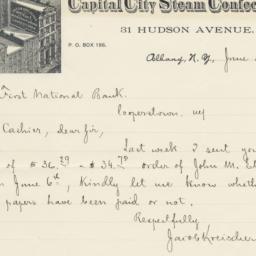 Capital City Steam Confec
31 HUDSON AVENUE,
P. O. BOX 186.
Albany, N. Y., June
First National Bank.
Cooperstown, NY
Cashier, dear Sir,
Last week I sent you
of $36.29 - $34.75 order of John M.
June 6th, Kindly let me know wheth
papers have been paid or not.
Respectfully
Jacob Kreischer